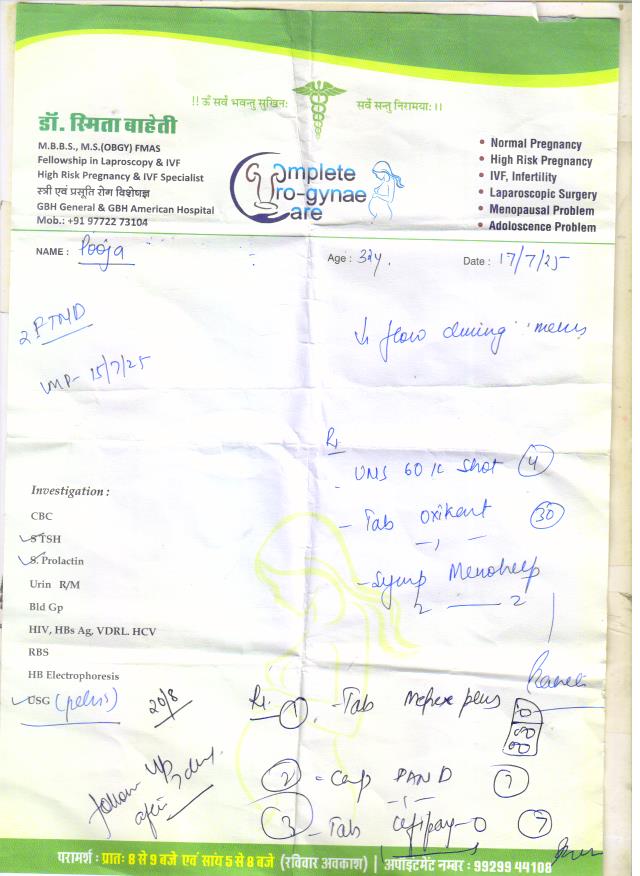 !! ॐ सर्वे भवन्तु सुखिनः
सर्वे सन्तु निरामयाः ।।
डॉ. स्मिता बाहेती
M.B.B.S., M.S.(OBGY) FMAS
Fellowship in Laproscopy & IVF
High Risk Pregnancy & IVF Specialist
स्त्री एवं प्रसूति रोग विशेषज्ञ
GBH General & GBH American Hospital
Mob.: +91 97722 73104
Complete
Uro-gynae
Care
• Normal Pregnancy
• High Risk Pregnancy
• IVF, Infertility
• Laparoscopic Surgery
• Menopausal Problem
• Adoloscence Problem
NAME : Pooja
Age : 32y.
Date : 17/7/25
2FTND
LMP- 15/7/25
↓ flow during menses
Rx
60 K Shot (4)
- Tab (30)
- Syrup Menohelp
2 — 2
Investigation :
CBC
S TSH
S. Prolactin
Urin R/M
Bld Gp
HIV, HBs Ag, VDRL. HCV
RBS
HB Electrophoresis
USG (pelvis)
20/8
Rx (1) - Tab plus
(2) - Cap PAN D (7)
(3) - Tab -O (7)
follow up
after 7 days.
परामर्श : प्रातः 8 से 9 बजे एवं सांय 5 से 8 बजे (रविवार अवकाश) | अपाइंटमेंट नम्बर : 99299 44108